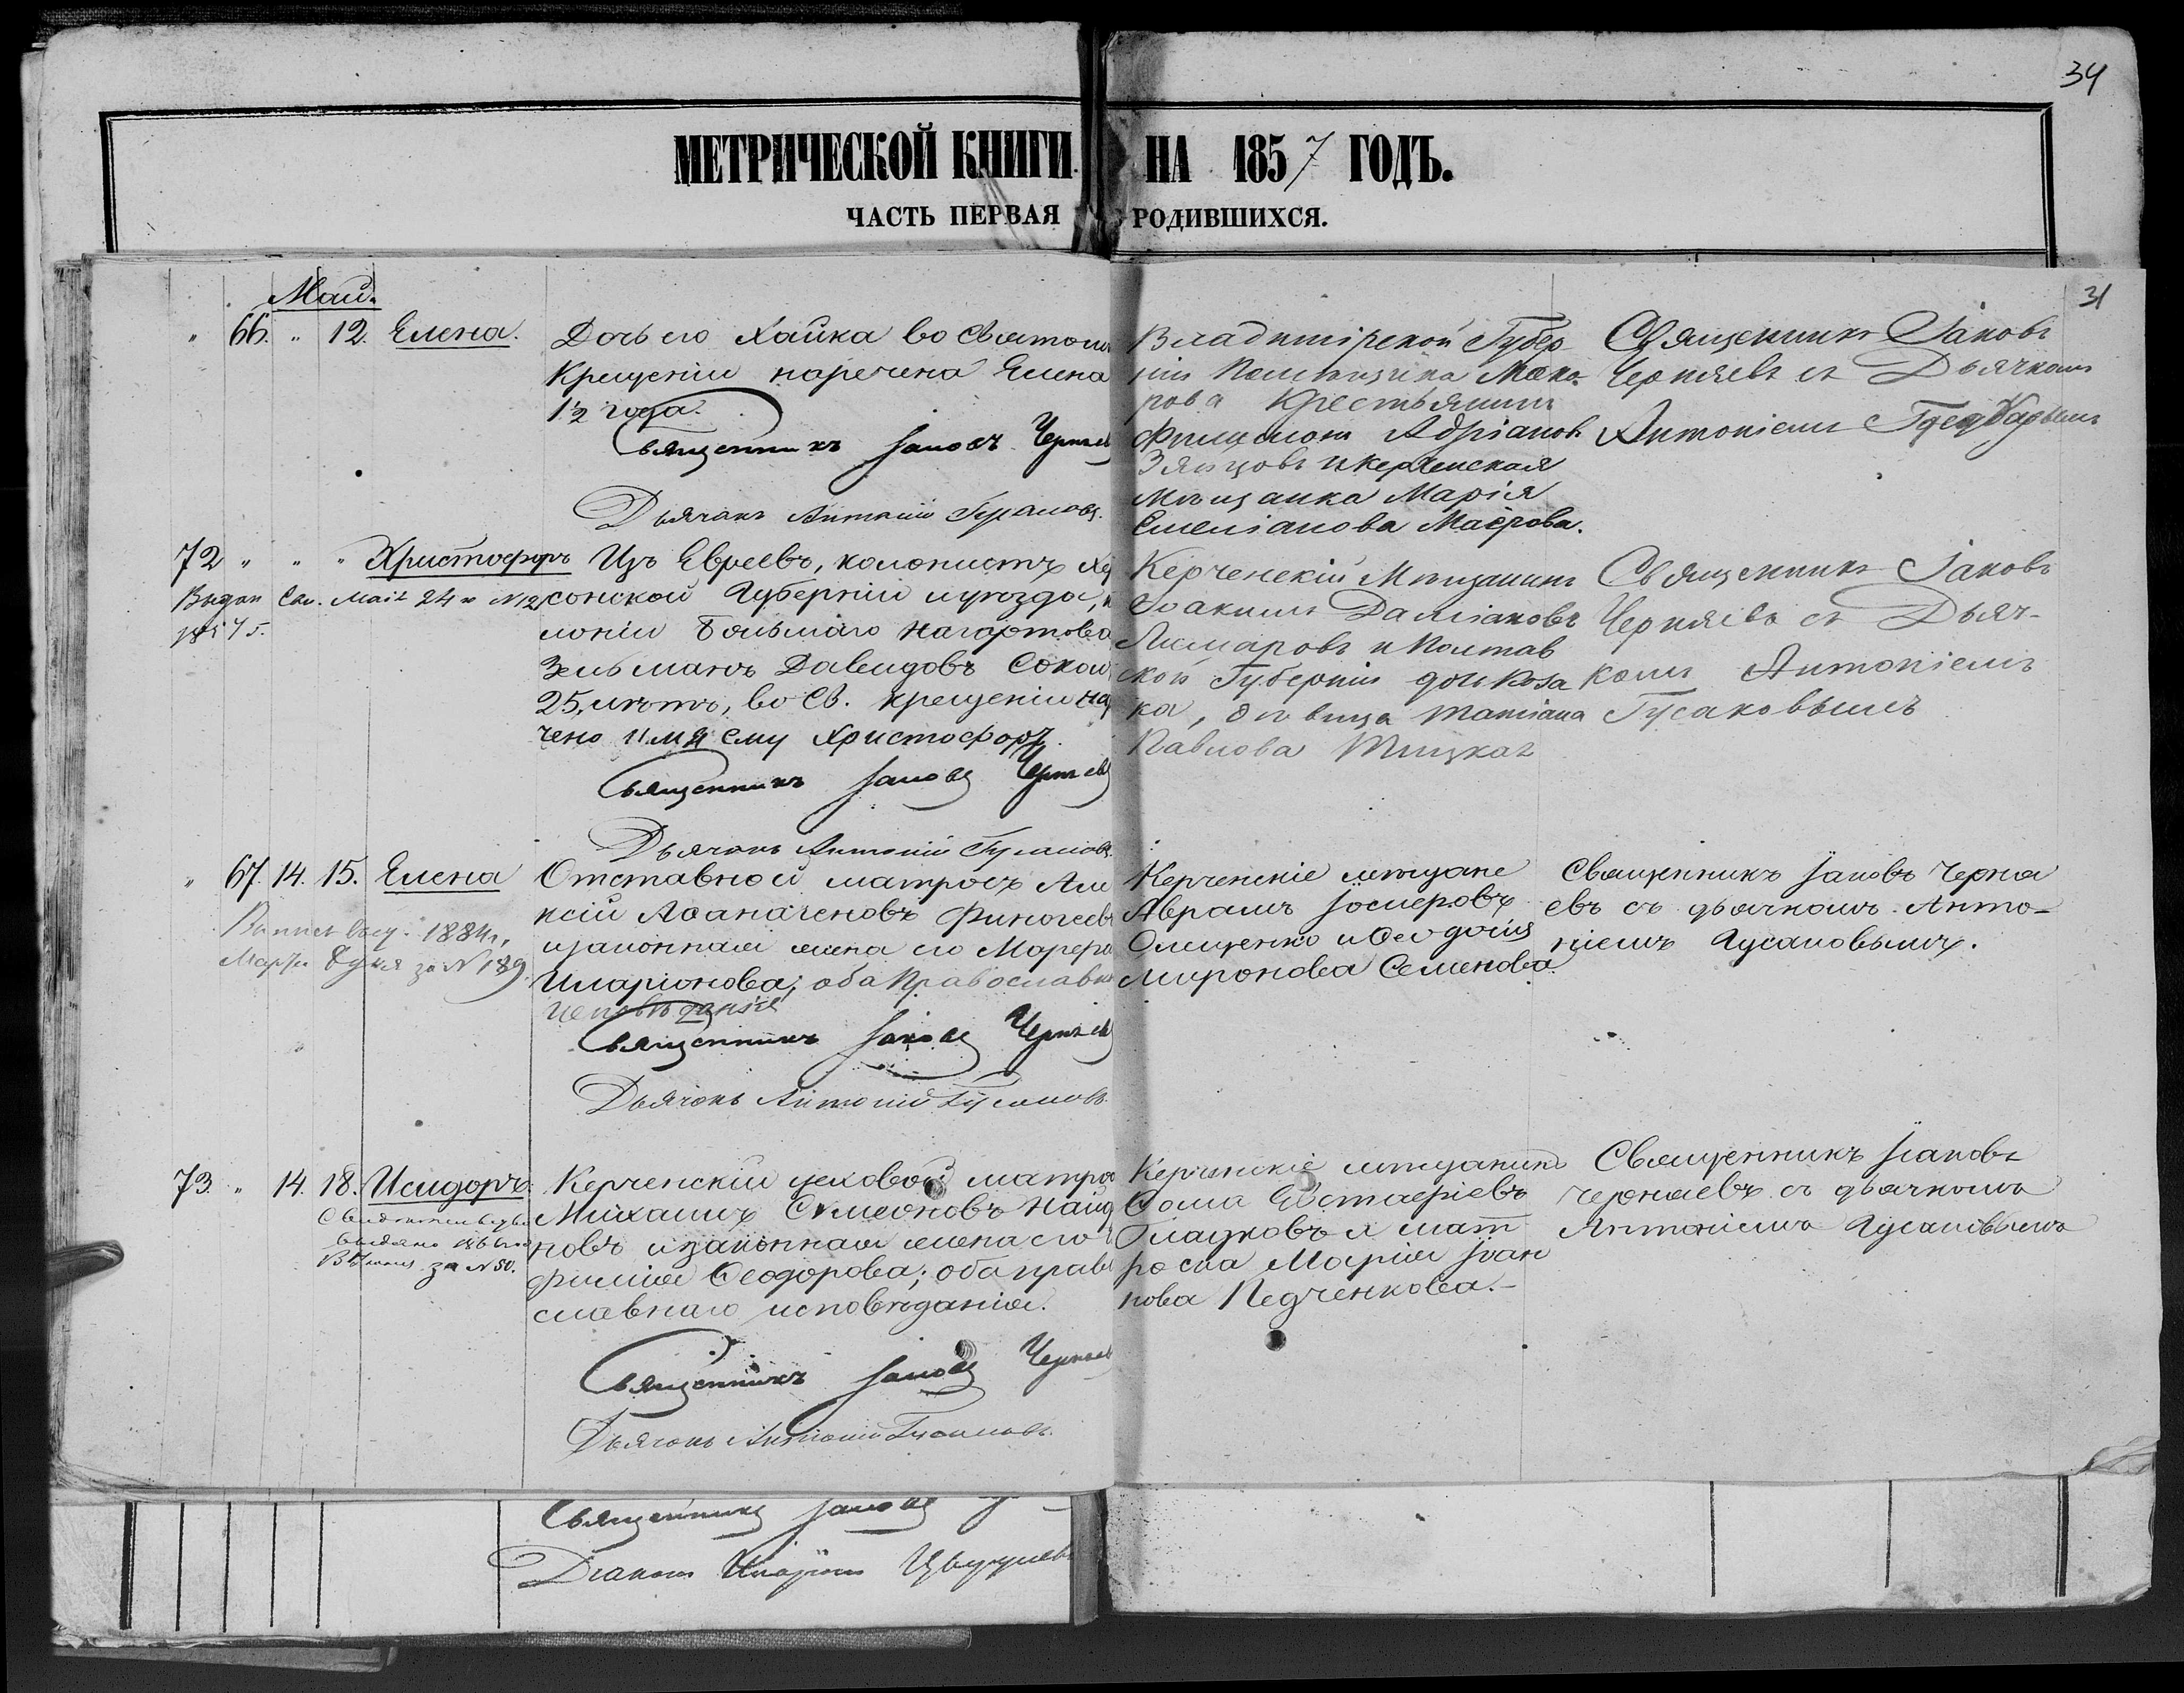 34
МЕТРИЧЕСКОЙ КНИГИ НА 1857 ГОДЪ.
ЧАСТЬ ПЕРВАЯ РОДИВШИХСЯ.
31
Май.
" 66. " 12. Елена.
Дочь его Хайка во Святомъ
Крещеніи наречена Елена
1½ года.
Священникъ Іаковъ Черняевъ
Дьячокъ Антоній Гусаковъ.
Владимірской Губер
ніи Помѣщика Мака
рова Крестьянинъ
Адріановъ
Зяпцовъ и Керченская
мѣщанка Марія
Емеліанова Маерова.
Священникъ Іаковъ
Черняевъ съ Дьячкомъ
Антоніемъ
72 " " " Христофоръ
Выдан Сви. Мая 24 N 12
1857 г.
Изъ Евреевъ, колонистъ Хер
сонской Губерніи и уѣзда,
лоніи Большаго Нагартова
Зельманъ Давидовъ Сокол
25, лѣтъ, во Св. Крещеніи на
чено имя ему Христофоръ.
Священникъ Іаковъ Черняевъ
Дьячокъ Антоній Гусаковъ.
Керченскій Мѣщанинъ
Іоакимъ Даміановъ
Лимаровъ и Полтав
ской Губерніи дочь Коза
ка, дѣвица Татіана
Павлова
Священникъ Іаковъ
Черняевъ съ Дьяч-
комъ Антоніемъ
Гусаковымъ
" 67. 14. 15. Елена
1884 г.
Марта 8 дня за N 189
Отставной матросъ Але
ксій Аѳанасеновъ Финогеевъ
и законная жена его
Иларіонова; оба Православнаго
исповѣданія
Священникъ Іаковъ Черняевъ
Дьячокъ Антоній Гусаковъ.
Керченскіе мѣщане
Аврамъ Іосифовъ
Онищенко и Ѳеодосія
Миронова Семенова.
Священникъ Іаковъ Черня
евъ съ дьячкомъ Анто-
ніемъ Гусаковымъ.
73. " 14. 18. Исидоръ.
Свидѣтельство
выдано
за N 50.
Керченскій цеховой матро
Михаилъ Симеоновъ Найд
новъ и законная жена его
фимія Ѳеодорова; оба право
славнаго исповѣданія.
Священникъ Іаковъ Черняевъ
Дьячокъ Антоній Гусаковъ.
Керченскіе мѣщанинъ
Ѳома Евстафіевъ
Гладковъ и мат
роска Марія Іоан
нова Педченкова.-
Священникъ Іаковъ
Черняевъ съ дьячкомъ
Антоніемъ Гусаковымъ
Священникъ Іаковъ
Діаконъ